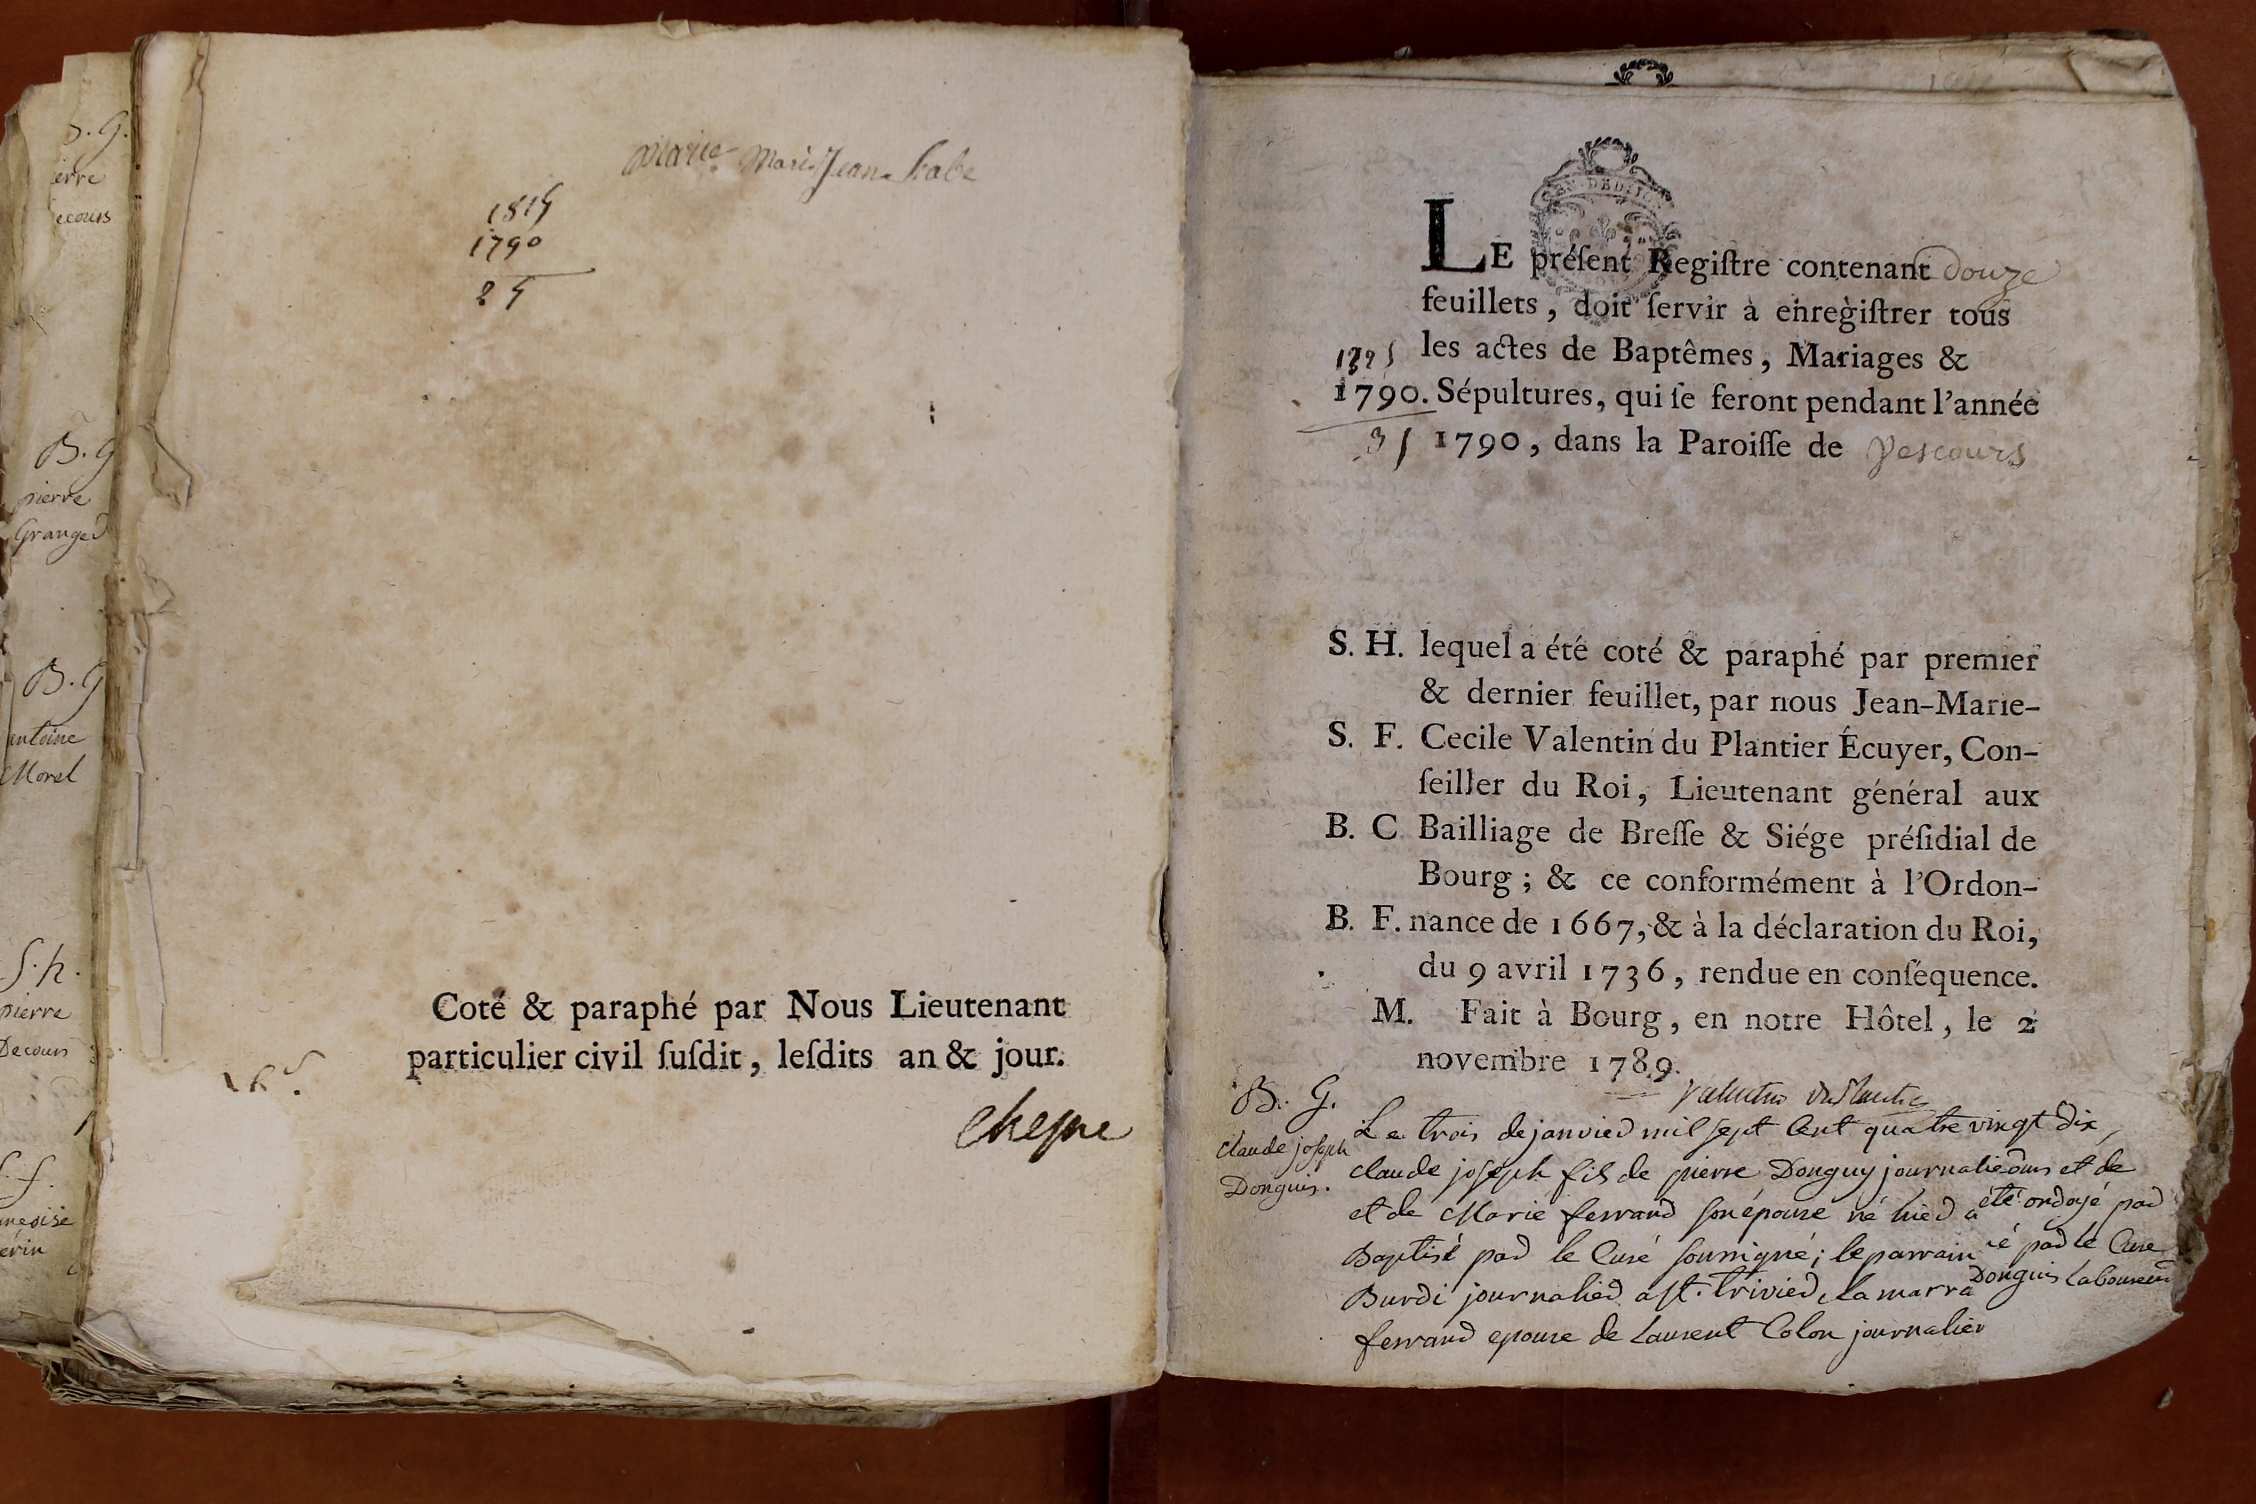 B. G.
pierre
Granged
B. G
antoine
Morel
S. h.
pierre
Decours
marie Marie Jean
1815
1790
25
Coté & paraphé par Nous Lieutenant
particulier civil ſuſdit, leſdits an & jour.
Chesne
LE préſent Regiſtre contenant douze
feuillets, doit ſervir à enregiſtrer tous
les actes de Baptêmes, Mariages &
1790. Sépultures, qui ſe feront pendant l'année
1790, dans la Paroiſſe de Vescours
S. H. lequel a été coté & paraphé par premier
& dernier feuillet, par nous Jean-Marie-
S. F. Cecile Valentin du Plantier Écuyer, Con-
ſeiller du Roi, Lieutenant général aux
B. C Bailliage de Breſſe & Siége préſidial de
Bourg ; & ce conformément à l'Ordon-
B. F. nance de 1667, & à la déclaration du Roi,
du 9 avril 1736, rendue en conſéquence.
M. Fait à Bourg, en notre Hôtel, le 2
novembre 1789.
Valentin duplantier
B. G.
Claude joseph
Donguis.
Le trois de janvier mil sept cent quatre vingt dix,
claude joseph fils de pierre Donguy journalier et de
et de Marie ferrand son épouse né hier a été ondoyé par
Baptisé par le Curé soussigné ; le parrain par le Curé
Burdi journalier a st. trivier, la marra Donguis Laboureur
ferrand epouse de Laurent Colon journalier